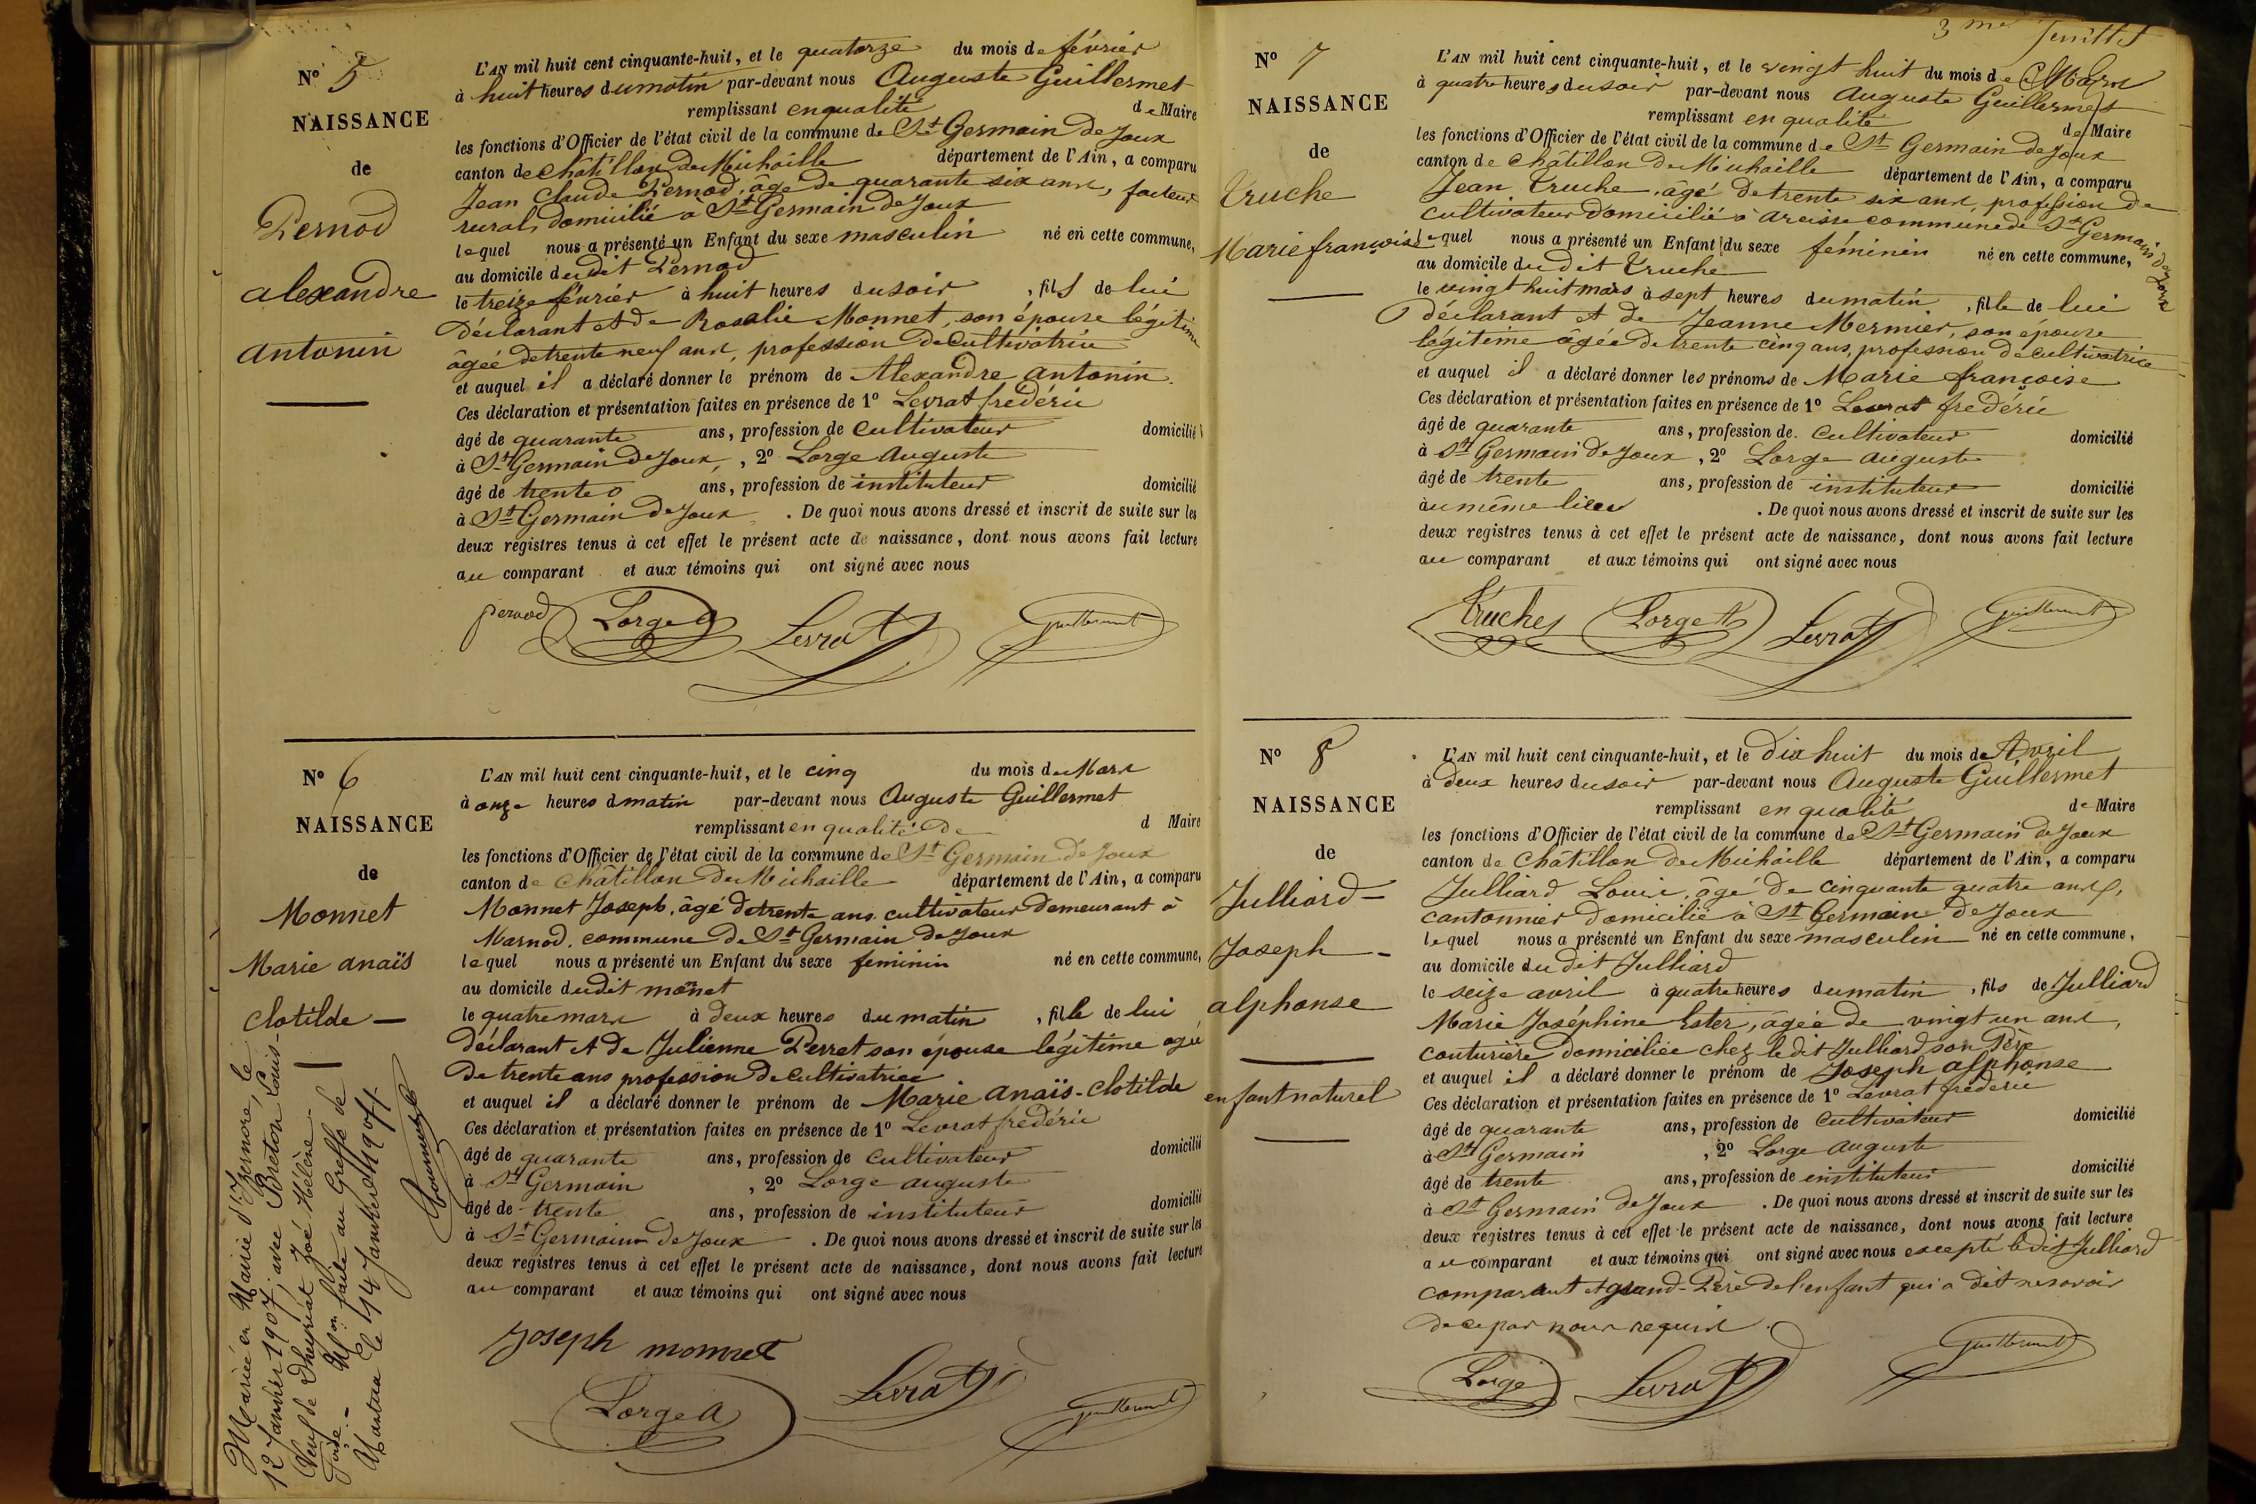 N° 5
NAISSANCE
de
Pernod
alexandre
antonin
L'AN mil huit cent cinquante-huit, et le quatorze du mois de février
à huit heures du matin par-devant nous Auguste Guillermet
remplissant en qualité de Maire
les fonctions d'Officier de l'état civil de la commune de St Germain de Joux
canton de Châtillon de Michaille département de l'Ain, a comparu
Jean Claude Pernod, âgé de quarante six ans, facteur
rural, domicilié à St Germain de Joux
lequel nous a présenté un Enfant du sexe masculin né en cette commune,
au domicile dudit Pernod
le treize février à huit heures du soir, fils de lui
déclarant et de Rosalie Monnet, son épouse légitime
âgée de trente neuf ans, profession de cultivatrice
et auquel il a déclaré donner le prénom de Alexandre antonin.
Ces déclaration et présentation faites en présence de 1° Levrat frédéric
âgé de quarante ans, profession de cultivateur domicilié
à St Germain de Joux, 2° Lorge Auguste
âgé de trente ans, profession de instituteur domicilié
à St Germain de Joux. De quoi nous avons dressé et inscrit de suite sur les
deux registres tenus à cet effet le présent acte de naissance, dont nous avons fait lecture
au comparant et aux témoins qui ont signé avec nous
pernod Lorge A Levrat Guillermet
N° 6
NAISSANCE
de
Monnet
Marie anaïs
Clotilde —
Mariée en Mairie d'Izernore, le
12 Janvier 1907, avec Breton Louis-
Veuf de Zoé Hélène.
Mon faite au Greffe de
Nantua le 14 Janvier 1907
L'AN mil huit cent cinquante-huit, et le cinq du mois de Mars
à onze heures d matin par-devant nous Auguste Guillermet
remplissant en qualité de d Maire
les fonctions d'Officier de l'état civil de la commune de St Germain de Joux
canton de Châtillon de Michaille département de l'Ain, a comparu
Monnet Joseph, âgé de trente ans cultivateur demeurant à
Marnod, commune de St Germain de Joux
lequel nous a présenté un Enfant du sexe feminin né en cette commune,
au domicile dudit monet
le quatre mars à deux heures du matin, fille de lui
déclarant et de Julienne Perret son épouse légitime agée
de trente ans profession de cultivatrice
et auquel il a déclaré donner le prénom de Marie Anaïs-Clotilde
Ces déclaration et présentation faites en présence de 1° Levrat frédéric
âgé de quarante ans, profession de cultivateur domicilié
à St Germain, 2° Lorge auguste
âgé de trente ans, profession de instituteur domicilié
à St Germain de Joux. De quoi nous avons dressé et inscrit de suite sur les
deux registres tenus à cet effet le présent acte de naissance, dont nous avons fait lecture
au comparant et aux témoins qui ont signé avec nous
Joseph monnet
Lorge A Levrat Guillermet
3me feuillet
N° 7
NAISSANCE
de
Truche
Marie françoise
L'AN mil huit cent cinquante-huit, et le vingt huit du mois de Mars
à quatre heures du soir par-devant nous Auguste Guillermet
remplissant en qualité de Maire
les fonctions d'Officier de l'état civil de la commune de St Germain de Joux
canton de Châtillon de Michaille département de l'Ain, a comparu
Jean Truche, âgé de trente six ans, profession de
cultivateur domicilié à arcisse commune de St Germain de Joux
lequel nous a présenté un Enfant du sexe féminin né en cette commune,
au domicile dudit Truche
le vingt huit mars à sept heures du matin, fille de lui
déclarant et de Jeanne Mermier, son épouse
légitime âgée de trente cinq ans, profession de cultivatrice
et auquel il a déclaré donner les prénoms de Marie françoise
Ces déclaration et présentation faites en présence de 1° Levrat frédéric
âgé de quarante ans, profession de cultivateur domicilié
à St Germain de Joux, 2° Lorge auguste
âgé de trente ans, profession de instituteur domicilié
au même lieu. De quoi nous avons dressé et inscrit de suite sur les
deux registres tenus à cet effet le présent acte de naissance, dont nous avons fait lecture
au comparant et aux témoins qui ont signé avec nous
Truche Lorge A Levrat Guillermet
N° 8
NAISSANCE
de
Julliard —
Joseph —
alphonse
enfant naturel
L'AN mil huit cent cinquante-huit, et le dix huit du mois de Avril
à deux heures du soir par-devant nous Auguste Guillermet
remplissant en qualité de Maire
les fonctions d'Officier de l'état civil de la commune de St Germain de Joux
canton de Châtillon de Michaille département de l'Ain, a comparu
Julliard Louis, âgé de cinquante quatre ans,
cantonnier domicilié à St Germain de Joux
lequel nous a présenté un Enfant du sexe masculin né en cette commune,
au domicile dudit Julliard
le seize avril à quatre heures du matin, fils de Julliard
Marie Joséphine Ester, âgée de vingt un ans,
couturière domiciliée chez ledit Julliard son Père
et auquel il a déclaré donner le prénom de Joseph alphonse
Ces déclaration et présentation faites en présence de 1° Levrat frédéric
âgé de quarante ans, profession de cultivateur domicilié
à St Germain, 2° Lorge auguste
âgé de trente ans, profession de instituteur domicilié
à St Germain de Joux. De quoi nous avons dressé et inscrit de suite sur les
deux registres tenus à cet effet le présent acte de naissance, dont nous avons fait lecture
au comparant et aux témoins qui ont signé avec nous excepté ledit Julliard
comparant et grand-Père de l'enfant qui a dit ne savoir
de ce par nous requis.
Lorge Levrat Guillermet